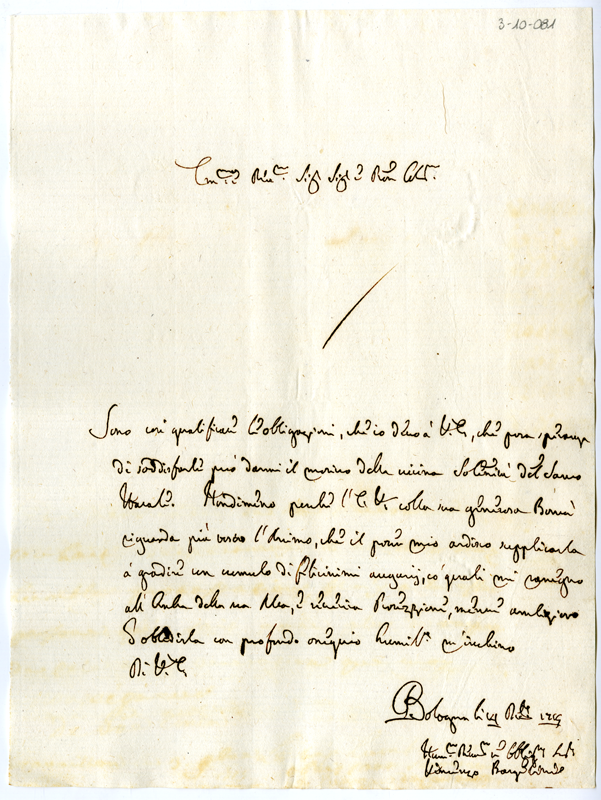 3-10-081
Em.mo e Rev.mo Sig. Sig.e Pron Col.mo
Sono così qualificate le obligazioni, che io devo à V. E., che poca speranza
di soddisfarle può darmi il motivo della vicina Solennità del Santo
Natale. Nondimeno perche l'E. V. colla sua generosa Bontà
riguarda più verso l'Animo, che il poter mio ardisco supplicarla
à gradire un cumulo di felicissimi augurij, co' quali mi
all' della sua e riverita Protezzione, mentre ambizioso
d'obbedirla con profondo ossequio humilm.te m'inchino
Di V. E.
Bologna li
Hum.mo Dev.mo et Obblig.mo
Vincenzo Bargellini